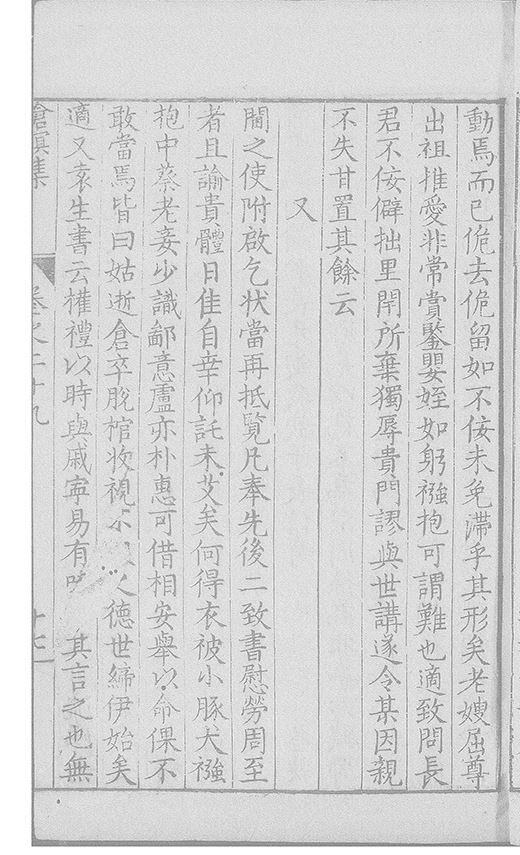 動焉而已佹去佹留如不佞未免滯乎其形矣老嫂屈尊
出祖推愛非常賞鑒嬰姪如躬襁抱可謂難也適致問長
君不佞僻拙里閈所棄獨辱貴門謬與世講遂令某因親
不失甘置其餘云
又
閫之使附啟乞狀當再抵覽凡奉先後二致書慰勞周至
者且諭貴體日佳自幸仰託未艾矣何得衣被小豚犬襁
抱中蔡老妾少識鄙意盧亦朴惠可借相安舉以命倮不
敢當焉皆曰姑逝倉卒脫棺收視 德世締伊始矣
適又袁生書云權禮以時與戚寧易有 其言之也無
滄溟集
卷之二十九
十七